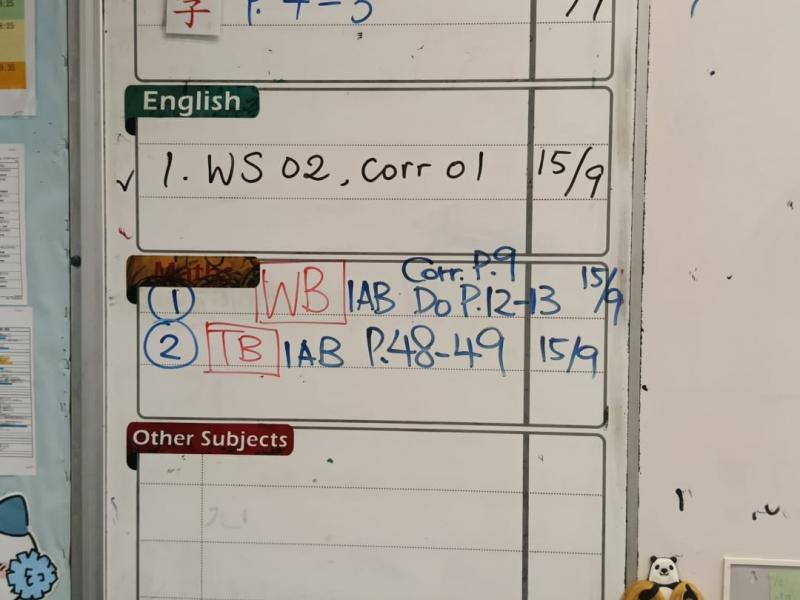 字 P. 4-5
English
1. WS 02, Corr 01 15/9
Maths
Corr. P.9
① WB 1AB Do P.12-13 15/9
② TB 1AB P.48-49 15/9
Other Subjects